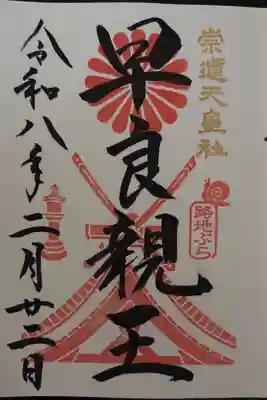 崇道天皇社
路地ぶら
早良親王
令和八年二月廿二日